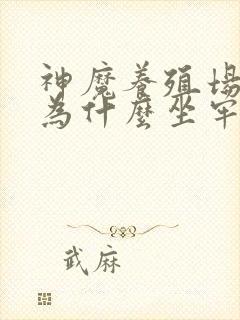 神魔養殖場
為什麼坐牢
武麻